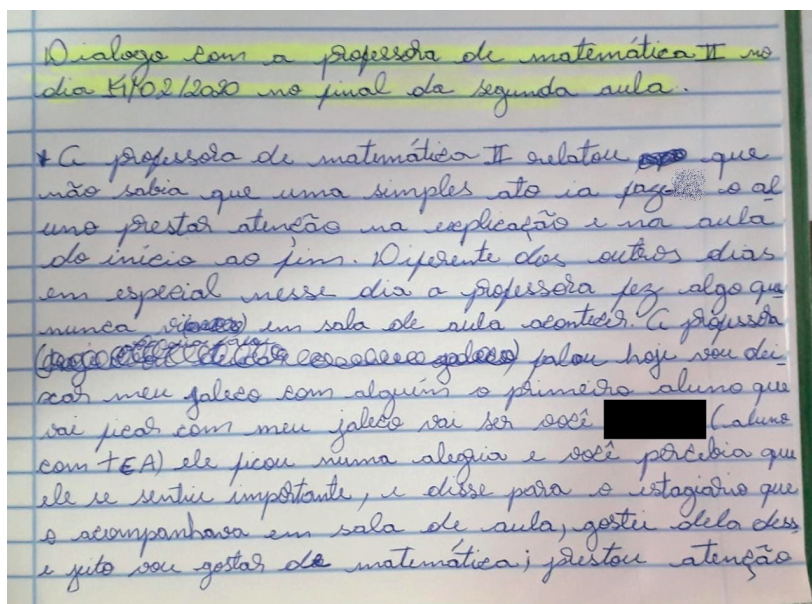 Dialogo com a professora de matemática II no
dia 14/02/2020 no final da segunda aula.
* A professora de matemática II relatou que
não sabia que uma simples ato ia o al
uno prestar atenção na explicação e na aula
do início ao fim. Diferente dos outros dias
em especial nesse dia a professora fez algo que
nunca em sala de aula acontecer. A professora
falou hoje vou dei
xar meu jaleco com alguém o primeiro aluno que
vai ficar com meu jaleco vai ser você (aluno
com TEA) ele ficou numa alegria e você percebia que
ele se sentiu importante, e disse para o estagiário que
o acompanhava em sala de aula, gostei dela dess
e jeito vou gostar de matemática; prestou atenção